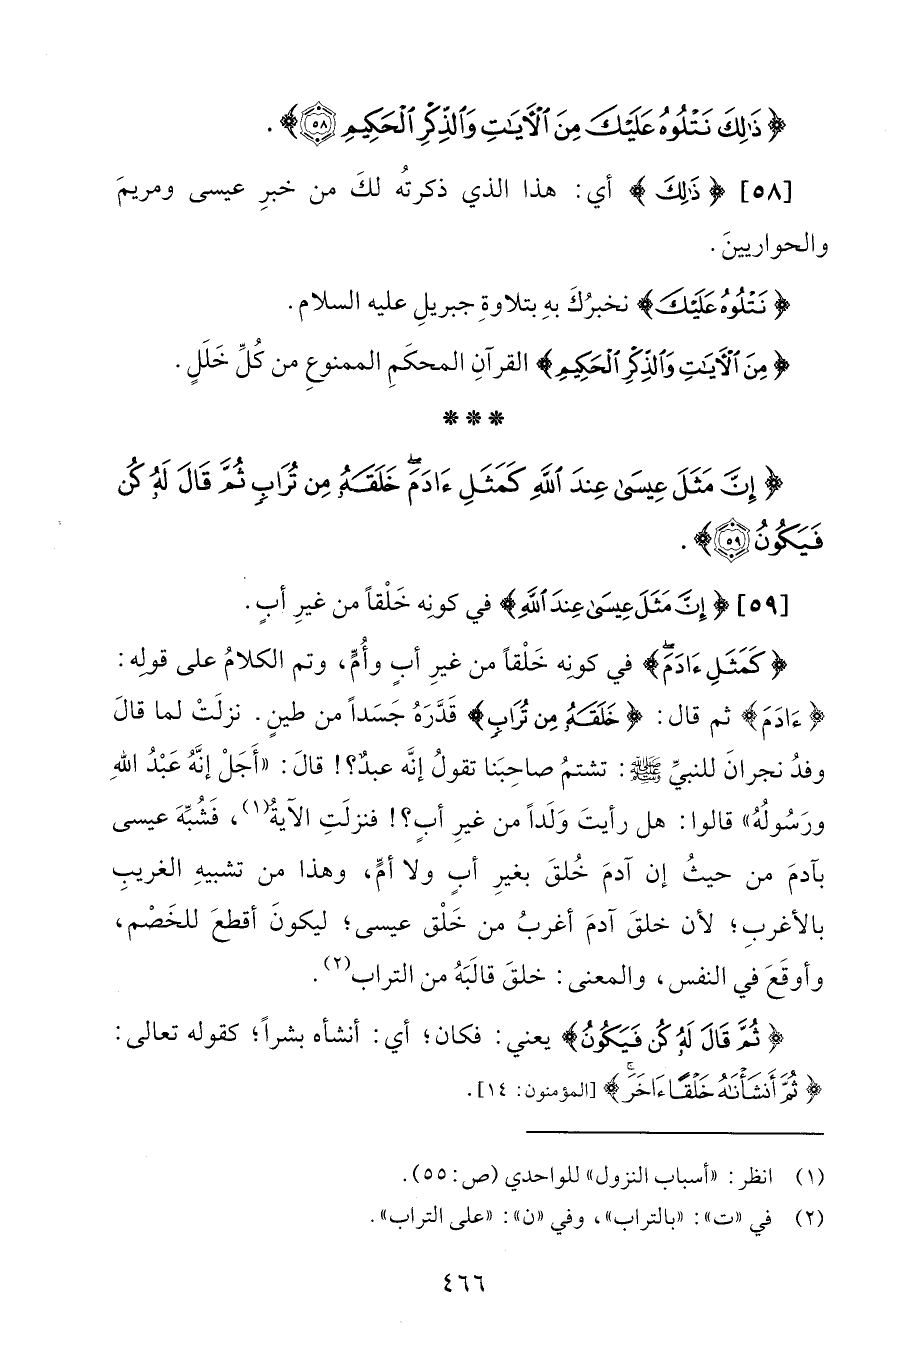 ﴿ ذَٰلِكَ نَتْلُوهُ عَلَيْكَ مِنَ ٱلْآيَٰتِ وَٱلذِّكْرِ ٱلْحَكِيمِ ٥٨ ﴾ .
[٥٨] ﴿ ذَٰلِكَ ﴾ أي: هذا الذي ذكرتُه لكَ من خبرِ عيسى ومريمَ
والحواريينَ .
﴿ نَتْلُوهُ عَلَيْكَ ﴾ نخبرُكَ بهِ بتلاوةِ جبريلِ عليه السلام .
﴿ مِنَ ٱلْآيَٰتِ وَٱلذِّكْرِ ٱلْحَكِيمِ ﴾ القرآنِ المحكَمِ الممنوعِ من كُلِّ خَلَلٍ .
* * *
﴿ إِنَّ مَثَلَ عِيسَىٰ عِندَ ٱللَّهِ كَمَثَلِ ءَادَمَ ۖ خَلَقَهُۥ مِن تُرَابٍ ثُمَّ قَالَ لَهُۥ كُن
فَيَكُونُ ٥٩ ﴾ .
[٥٩] ﴿ إِنَّ مَثَلَ عِيسَىٰ عِندَ ٱللَّهِ ﴾ في كونِه خَلْقاً من غيرِ أبٍ .
﴿ كَمَثَلِ ءَادَمَ ۖ ﴾ في كونِه خَلْقاً من غيرِ أبٍ وأُمٍّ، وتم الكلامُ على قولِه :
﴿ ءَادَمَ ﴾ ثم قال : ﴿ خَلَقَهُۥ مِن تُرَابٍ ﴾ قَدَّرَهُ جَسَداً من طينٍ . نزلَتْ لما قالَ
وفدُ نجرانَ للنبيِّ ﷺ : تشتمُ صاحِبَنا تقولُ إنَّه عبدٌ؟! قالَ : «أَجَلْ إنَّهُ عَبْدُ اللهِ
ورَسُولُهُ» قالوا : هل رأيتَ وَلَداً من غيرِ أبٍ؟! فنزلَتِ الآيةُ(١)، فَشُبِّهَ عيسى
بآدمَ من حيثُ إن آدمَ خُلقَ بغيرِ أبٍ ولا أمٍّ، وهذا من تشبيهِ الغريبِ
بالأغربِ؛ لأن خلقَ آدمَ أغربُ من خَلْق عيسى؛ ليكونَ أقطعَ للخَصْم،
وأوقَعَ في النفس، والمعنى : خلقَ قالَبَهُ من التراب(٢).
﴿ ثُمَّ قَالَ لَهُۥ كُن فَيَكُونُ ﴾ يعني : فكان؛ أي : أنشأه بشراً؛ كقوله تعالى :
﴿ ثُمَّ أَنشَأْنَٰهُ خَلْقًا ءَاخَرَ ۚ ﴾ [المؤمنون: ١٤].
(١) انظر : «أسباب النزول» للواحدي (ص: ٥٥).
(٢) في «ت» : «بالتراب»، وفي «ن» : «على التراب».
٤٦٦